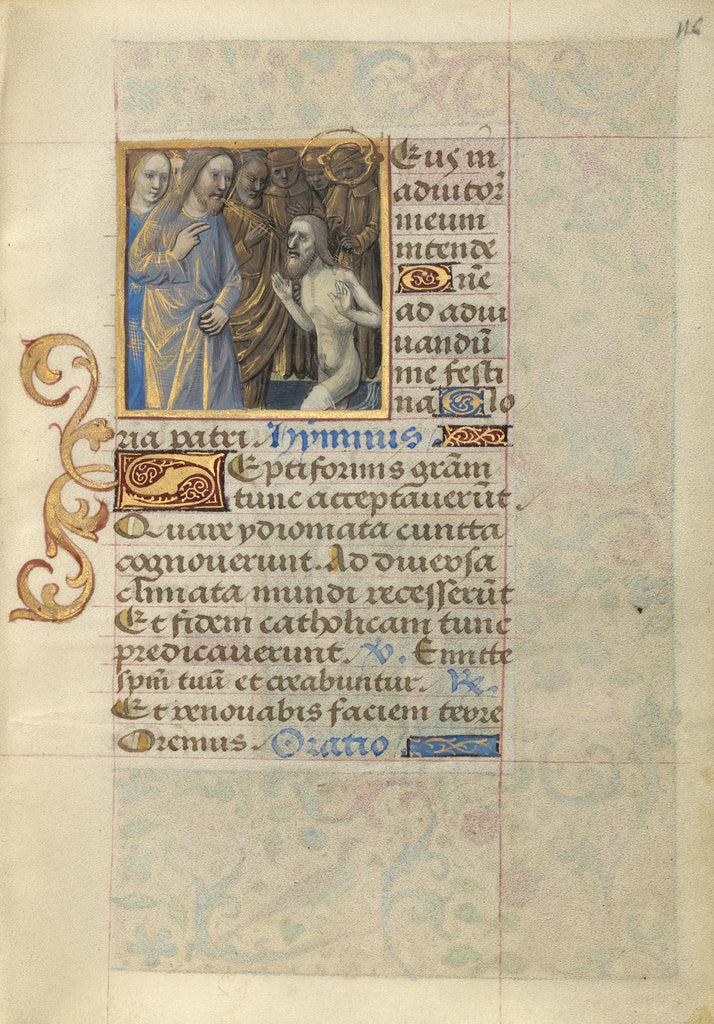 116
Eus in
adiutor
meum
intende
Dñe
ad adiu
uandū
me festi
na Glo
ria patri. Hỹmnus.
Septiformis grãm
tunc acceptauerũt
Quare ydiomata cuncta
cognouerunt. Ad diuersa
climata mundi recesserũt
Et fidem catholicam tunc
predicauerunt. V. Emitte
spm̃ tuũ et creabuntur. Re.
Et renouabis faciem terre
Oremus. Oratio